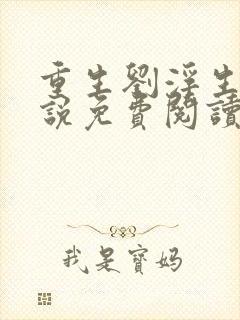 重生劉淫生
說免費閱讀
我是寶媽